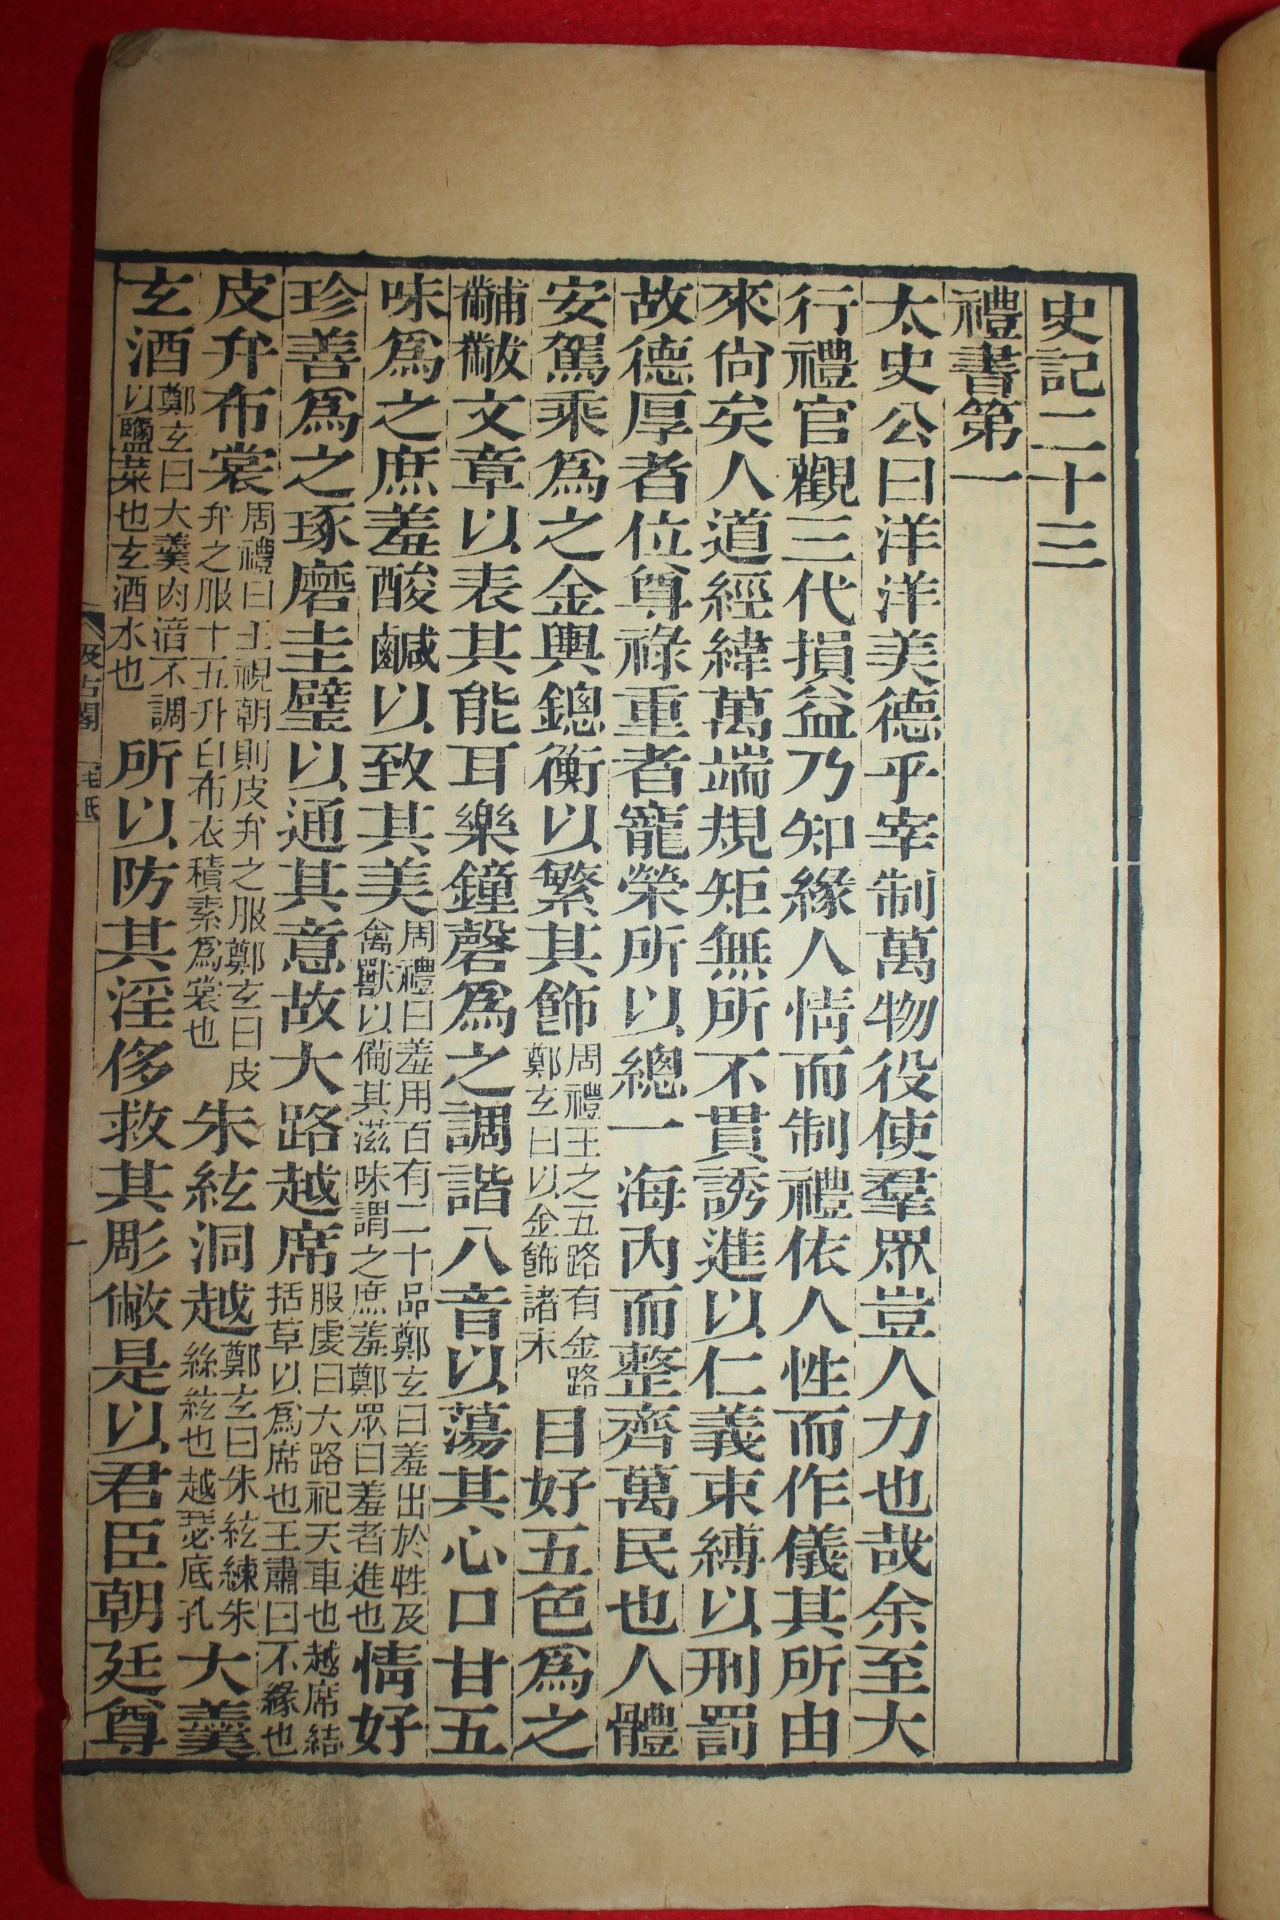 史記二十三
禮書第一
太史公曰洋洋美德乎宰制萬物役使羣眾豈人力也哉余至大
行禮官觀三代損益乃知緣人情而制禮依人性而作儀其所由
來尙矣人道經緯萬端規矩無所不貫誘進以仁義束縛以刑罰
故德厚者位尊祿重者寵榮所以總一海內而整齊萬民也人體
安駕乘爲之金輿鍯衡以繁其飾周禮王之五路有金路鄭玄曰以金飾諸末目好五色爲之
黼黻文章以表其能耳樂鐘磬爲之調諧八音以蕩其心口甘五
味爲之庶羞酸鹹以致其美周禮曰羞用百有二十品鄭玄曰羞出於牲及禽獸以備其滋味謂之庶羞鄭眾曰羞者進也情好
珍善爲之琢磨圭璧以通其意故大路越席服虔曰大路祀天車也越席結括草以爲席也王肅曰不緣也
皮弁布裳周禮曰王視朝則皮弁之服鄭玄曰皮弁之服十五升白布衣積素爲裳也朱絃洞越鄭玄曰朱絃練朱絲絃也越瑟底孔大羹
玄酒鄭玄曰大羹肉湆不調以鹽菜也玄酒水也所以防其淫侈救其彫敝是以君臣朝廷尊
汲古閣
毛氏
一